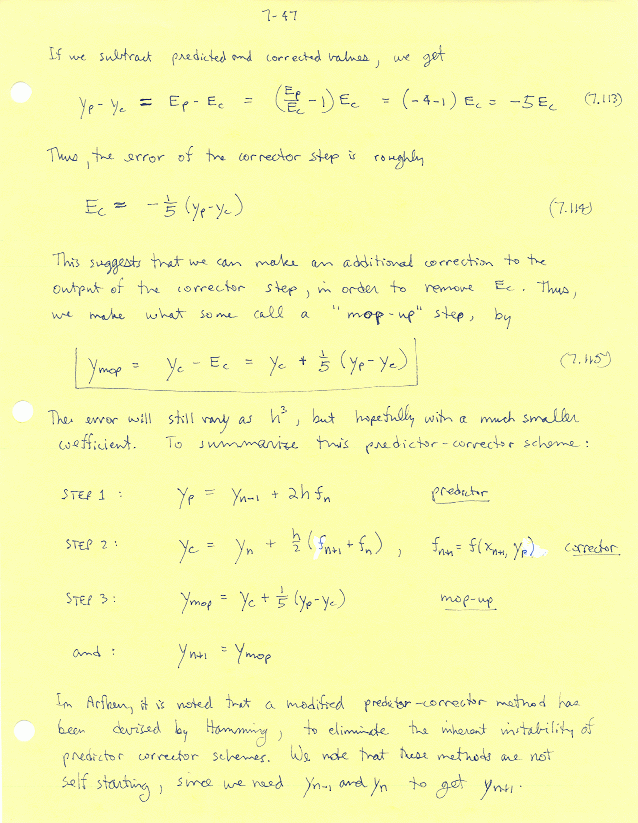 7-47
If we subtract predicted and corrected values, we get
yp - yc = Ep - Ec = (Ep/Ec - 1) Ec = (-4-1) Ec = -5Ec (7.113)
Thus, the error of the corrector step is roughly
Ec ≈ -1/5 (yp-yc) (7.114)
This suggests that we can make an additional correction to the
output of the corrector step, in order to remove Ec. Thus,
we make what some call a "mop-up" step, by
ymop = yc - Ec = yc + 1/5 (yp-yc) (7.115)
The error will still vary as h³, but hopefully with a much smaller
coefficient. To summarize this predictor-corrector scheme:
STEP 1: yp = yn-1 + 2h fn predictor
STEP 2: yc = yn + h/2 (fn+1 + fn), fn+1 = f(xn+1, yp) corrector
STEP 3: ymop = yc + 1/5 (yp-yc) mop-up
and: yn+1 = ymop
In Arfken, it is noted that a modified predictor-corrector method has
been devised by Hamming, to eliminate the inherent instability of
predictor corrector schemes. We note that these methods are not
self starting, since we need yn-1 and yn to get yn+1.